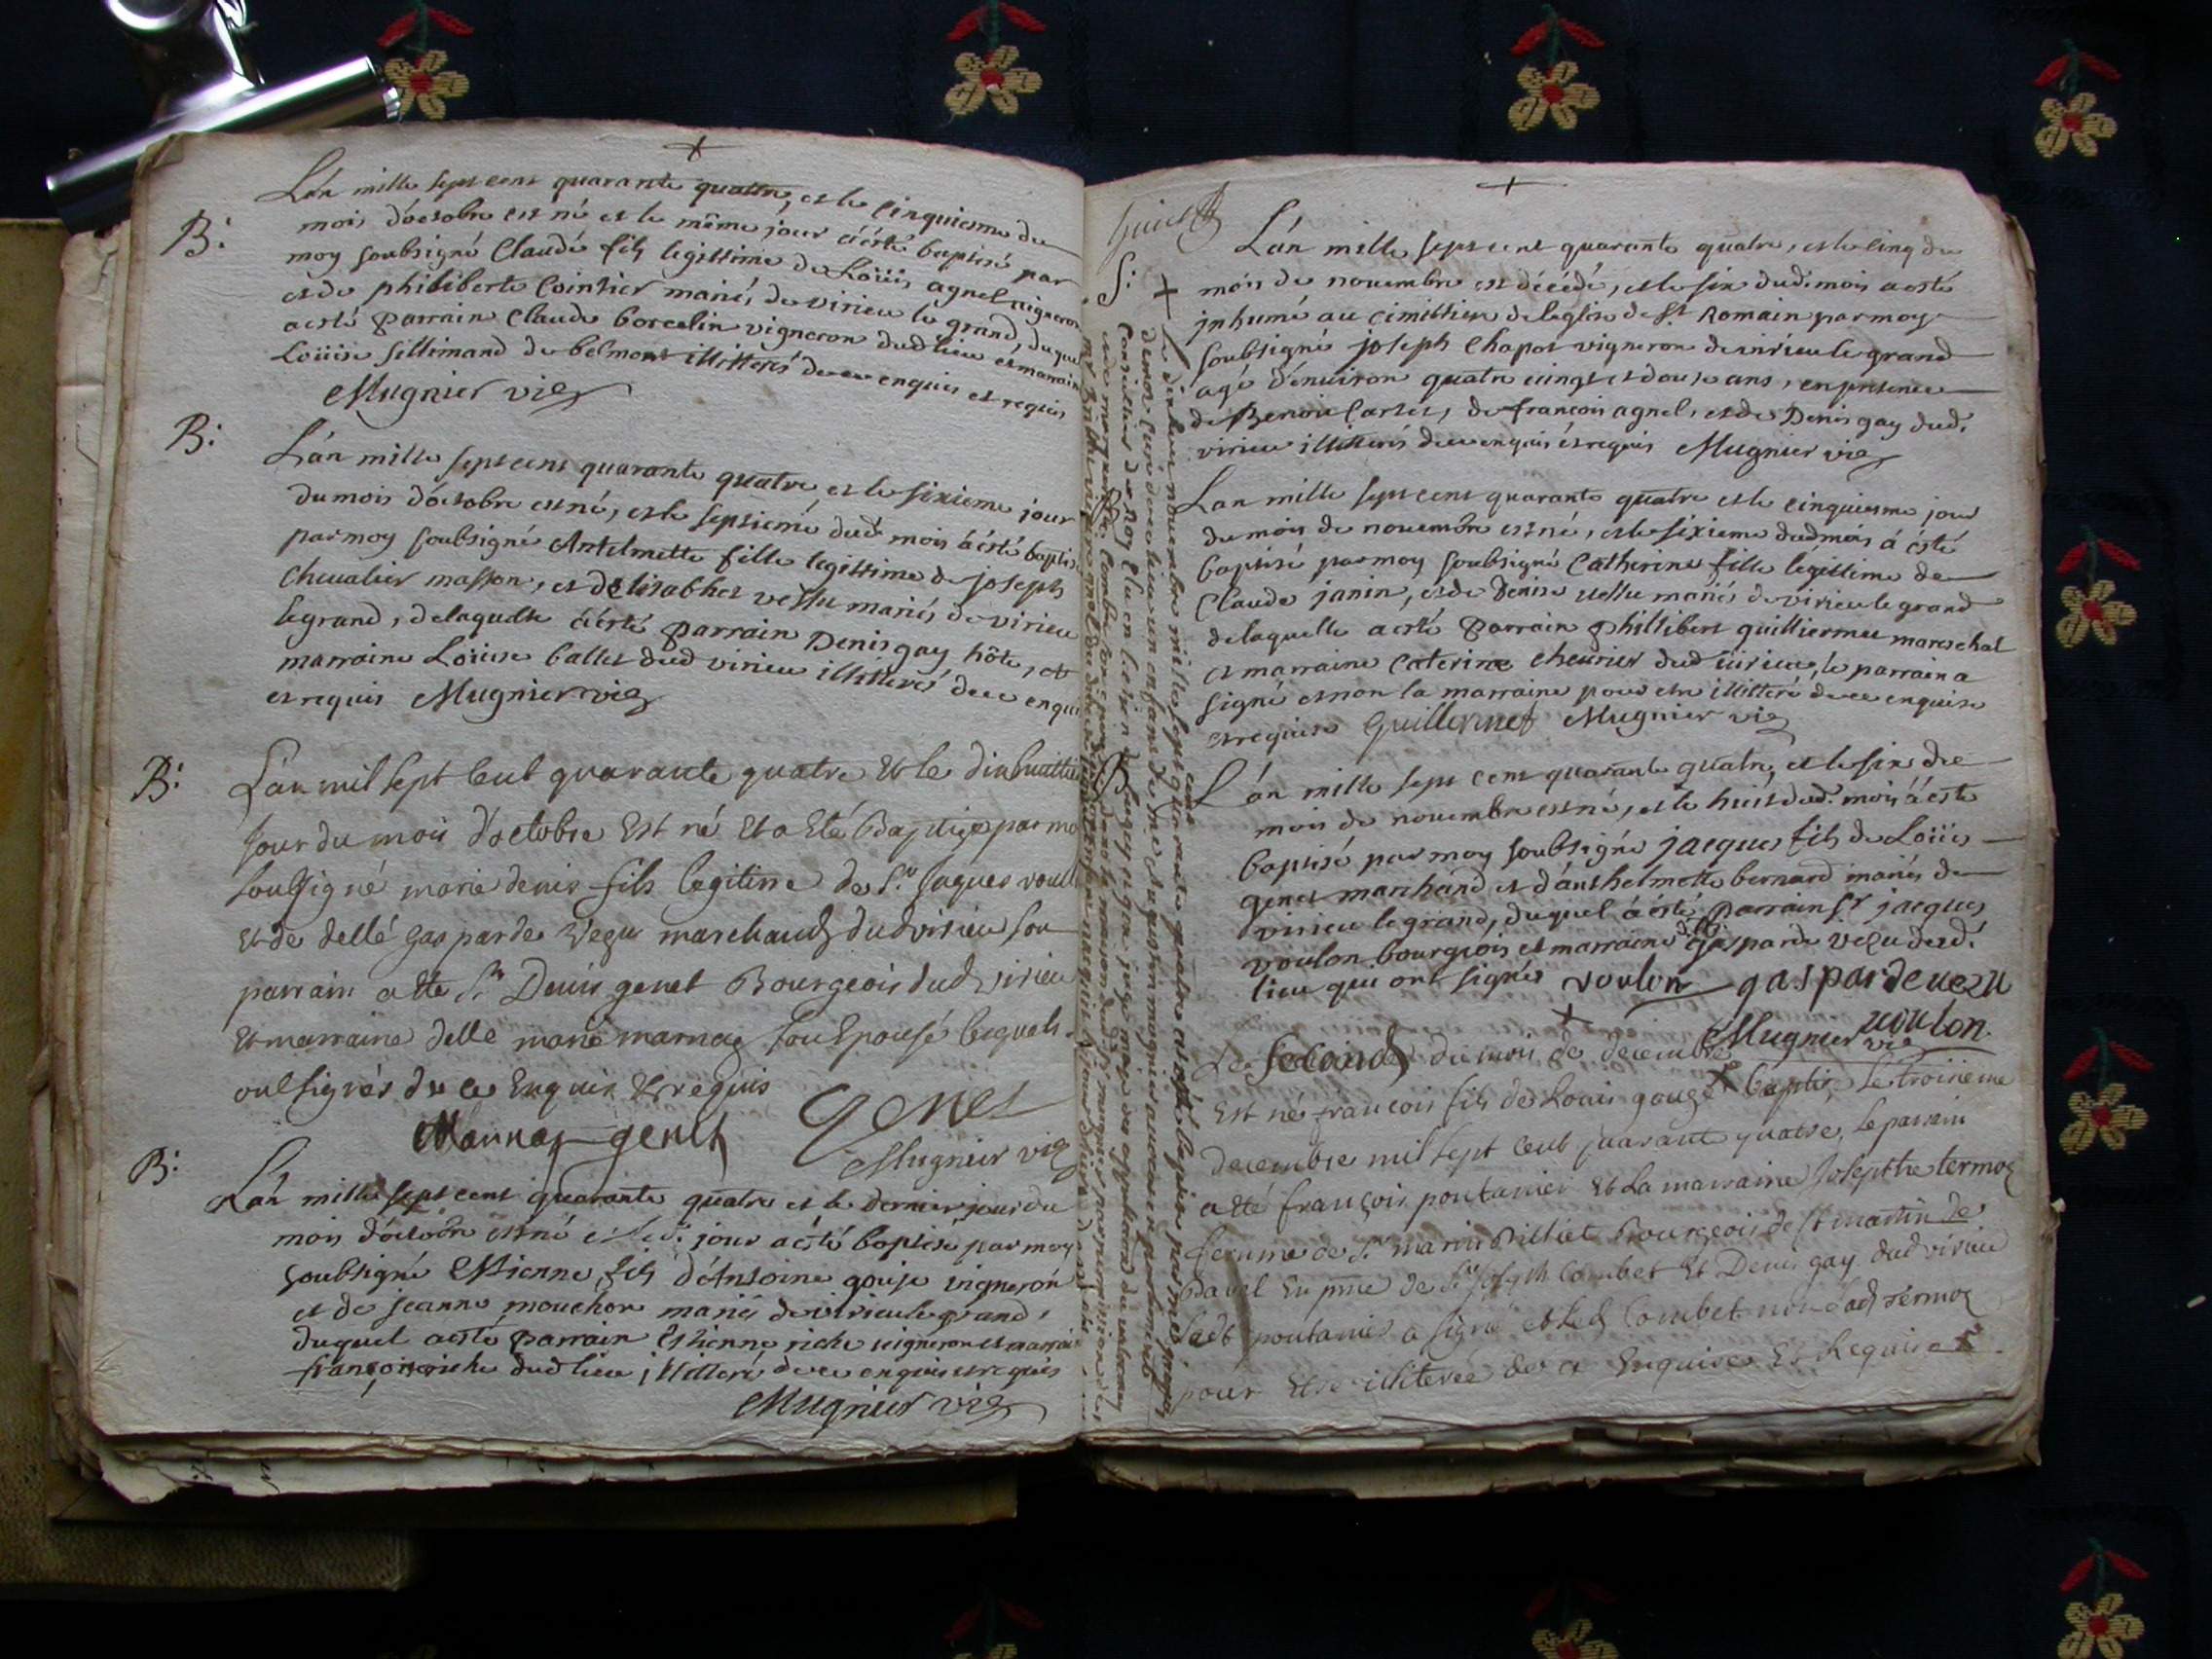 B:
L'an mille sept cent quarante quattre, et le cinquiesme du
mois d'octobre est né et le même jour à été baptisé par
moy soubsigné Claude fils legittime de Loüis agnel vigneron
et de philiberte Cointier mariés de virieu le grand, duquel
a esté parrain Claude borcelin vigneron dud lieu et marraine
Loüise Sillimand de belmont illitterés de ce enquis et requis
Mugnier vic
B:
L'an mille sept cent quarante quatre et le sixieme jour
du mois d'octobre est né, et le septiemé dud mois à été baptis
par moy soubsigné Antelmette fille legittime de joseph
Chevalier masson, et d'elisabhet vettu mariés de virieu
le grand, de laquelle à été parrain Denis gay hôte, et
marraine Loüise ballet dud virieu illitterés de ce enqui
et requis Mugnier vic
B:
L'an mil sept Cent quarante quatre Et le dixhuittie
Jour du mois d'octobre Est né Et a Eté Baptizé par mo
soussigné marie denis fils legitime de Sr Jaques voul
Et de dellé gasparde Vezu marchands dud virieu son
parrain a ete Sr Denis genet Bourgeois dud virieu
Et marraine delle marie marnaz son Epouse lesquels
ont signés de ce Enquis & requis
Marnaz genet genet
Mugnier vic
B:
L'an mille sept cent quarante quatre et le dernier jour du
mois d'octobre est né et led. jour a esté baptisé par moy
soubsigné Estienne fils d'Antoine gouje vigneron
et de jeanne mouchon mariés de virieu le grand,
duquel a esté parrain Estienne riche vigneron et marraine
françoise riche dud lieu illitteré de ce enquis et requis
Mugnier vic
huict
S:
L'an mille sept cent quarante quatre, et le cinq du
mois de novembre est décédé, et le six dud. mois a esté
inhumé au cimittiere de leglise de St Romain par moy
soubsigné joseph Chapot vigneron de virieu le grand
agé d'environ quatre vingt et douse ans, en presence
de Benoit Carret, de françois agnel, et de Denis gay dud.
virieu illitterés de ce enquis et requis Mugnier vic
L'an mille sept cent quarante quatre et le cinquiesme jour
du mois de novembre est né, et le sixieme dud mois à été
baptisé par moy soubsigné Catherine fille légittime de
Claude janin, et de Denise vettu mariés de virieu le grand
de laquelle a esté parrain phillibert quilliermet mareschal
et marraine Caterine Chevrier dud virieu, le parrain a
signé et non la marraine pour etre illitteré de ce enquise
et requise Guillermet Mugnier vic
B
L'an mille sept cent quarante quatre, et le six du
mois de novembre est né, et le huit dud. mois à esté
baptisé par moy soubsigné jacques fils de Loüis
genet marchand et d'anthelmette bernard mariés de
virieu le grand, duquel à été parrain Sr jacques
voulon bourgeois et marraine dlle gasparde vezu dud.
lieu qui ont signés voulon gasparde uezu
Mugnier vic uoulon
Le Second du mois de decembre
Est né françois fils de Louis gouge Baptizé le troisieme
decembre mil sept cent quarante quatre, le parrain
a eté françois pontanier Et la marraine Josephte termoz
femme de Sr marin Billiet Bourgeois de St martin de
Bavel En pnce de Sr Joseph Combet Et Denis gay dud virieu
led pontanier a signé et led Combet non lad termoz
pour Etre illiterée de ce Enquise Et Requise